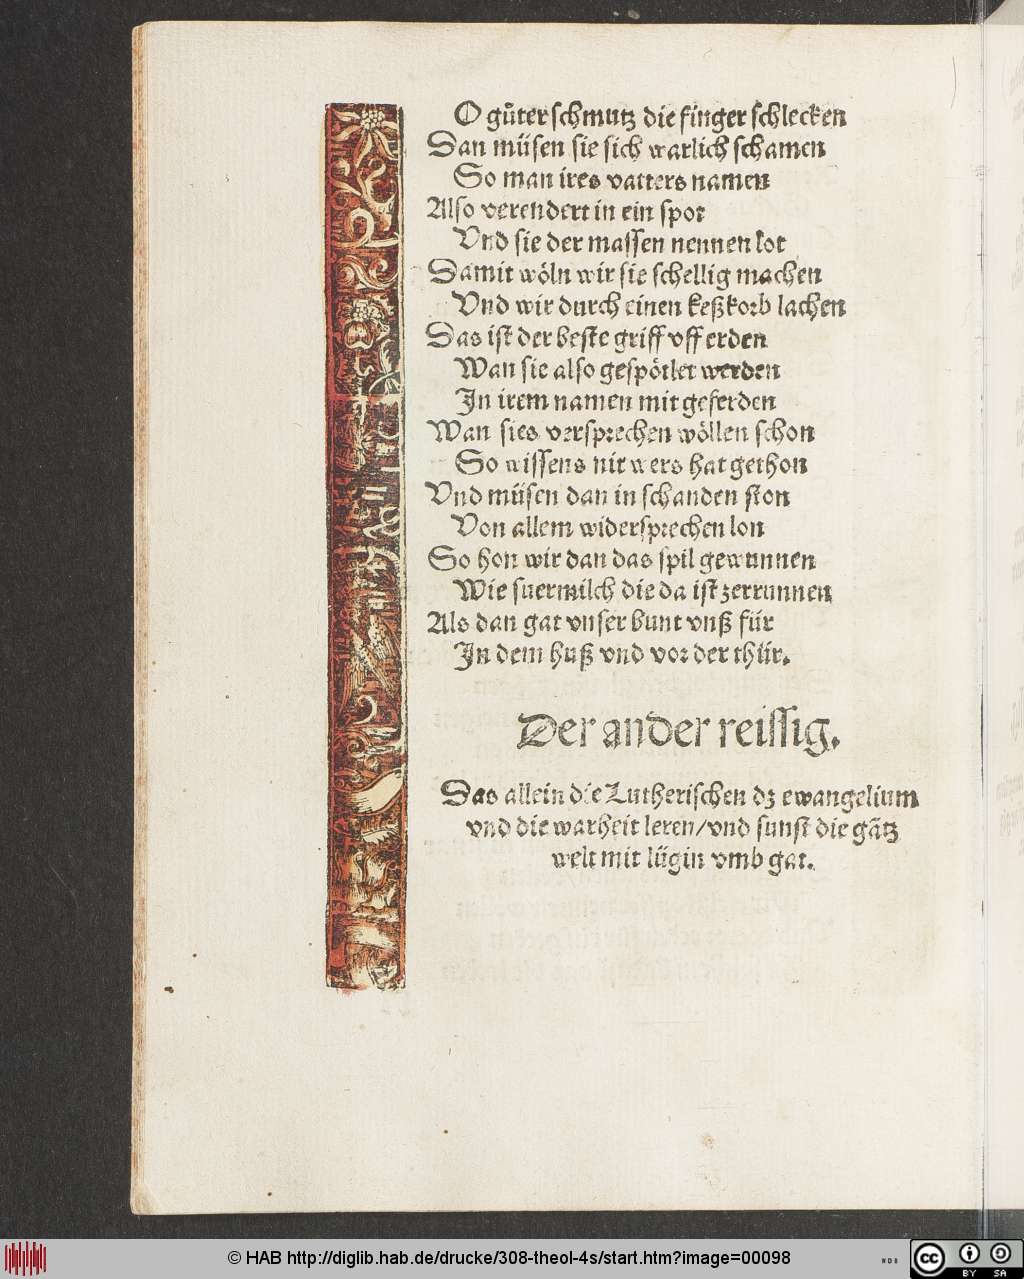 O gůter schmutz die finger schlecken
Dan müsen sie sich warlich schamen
So man ires vatters namen
Also verendert in ein spot
Vnd sie der massen nennen lot
Damit wöln wir sie schellig machen
Vnd wir durch einen keßkorb lachen
Das ist der beste griff vff erden
Wan sie also gespötlet werden
In irem namen mit geferden
Wan sies versprechen wöllen schon
So wissens nit wers hat gethon
Vnd müsen dan in schanden ston
Von allem widersprechen lon
So hon wir dan das spil gewunnen
Wie suermilch die da ist zerrunnen
Als dan gat vnser bunt vnß für
In dem huß vnd vor der thür.
Der ander reissig.
Das allein die Lutherischen dz ewangelium
vnd die warheit leren/vnd sunst die gātz
welt mit lügin vmb gat.
© HAB http://diglib.hab.de/drucke/308-theol-4s/start.htm?image=00098
WDB
cc BY SA